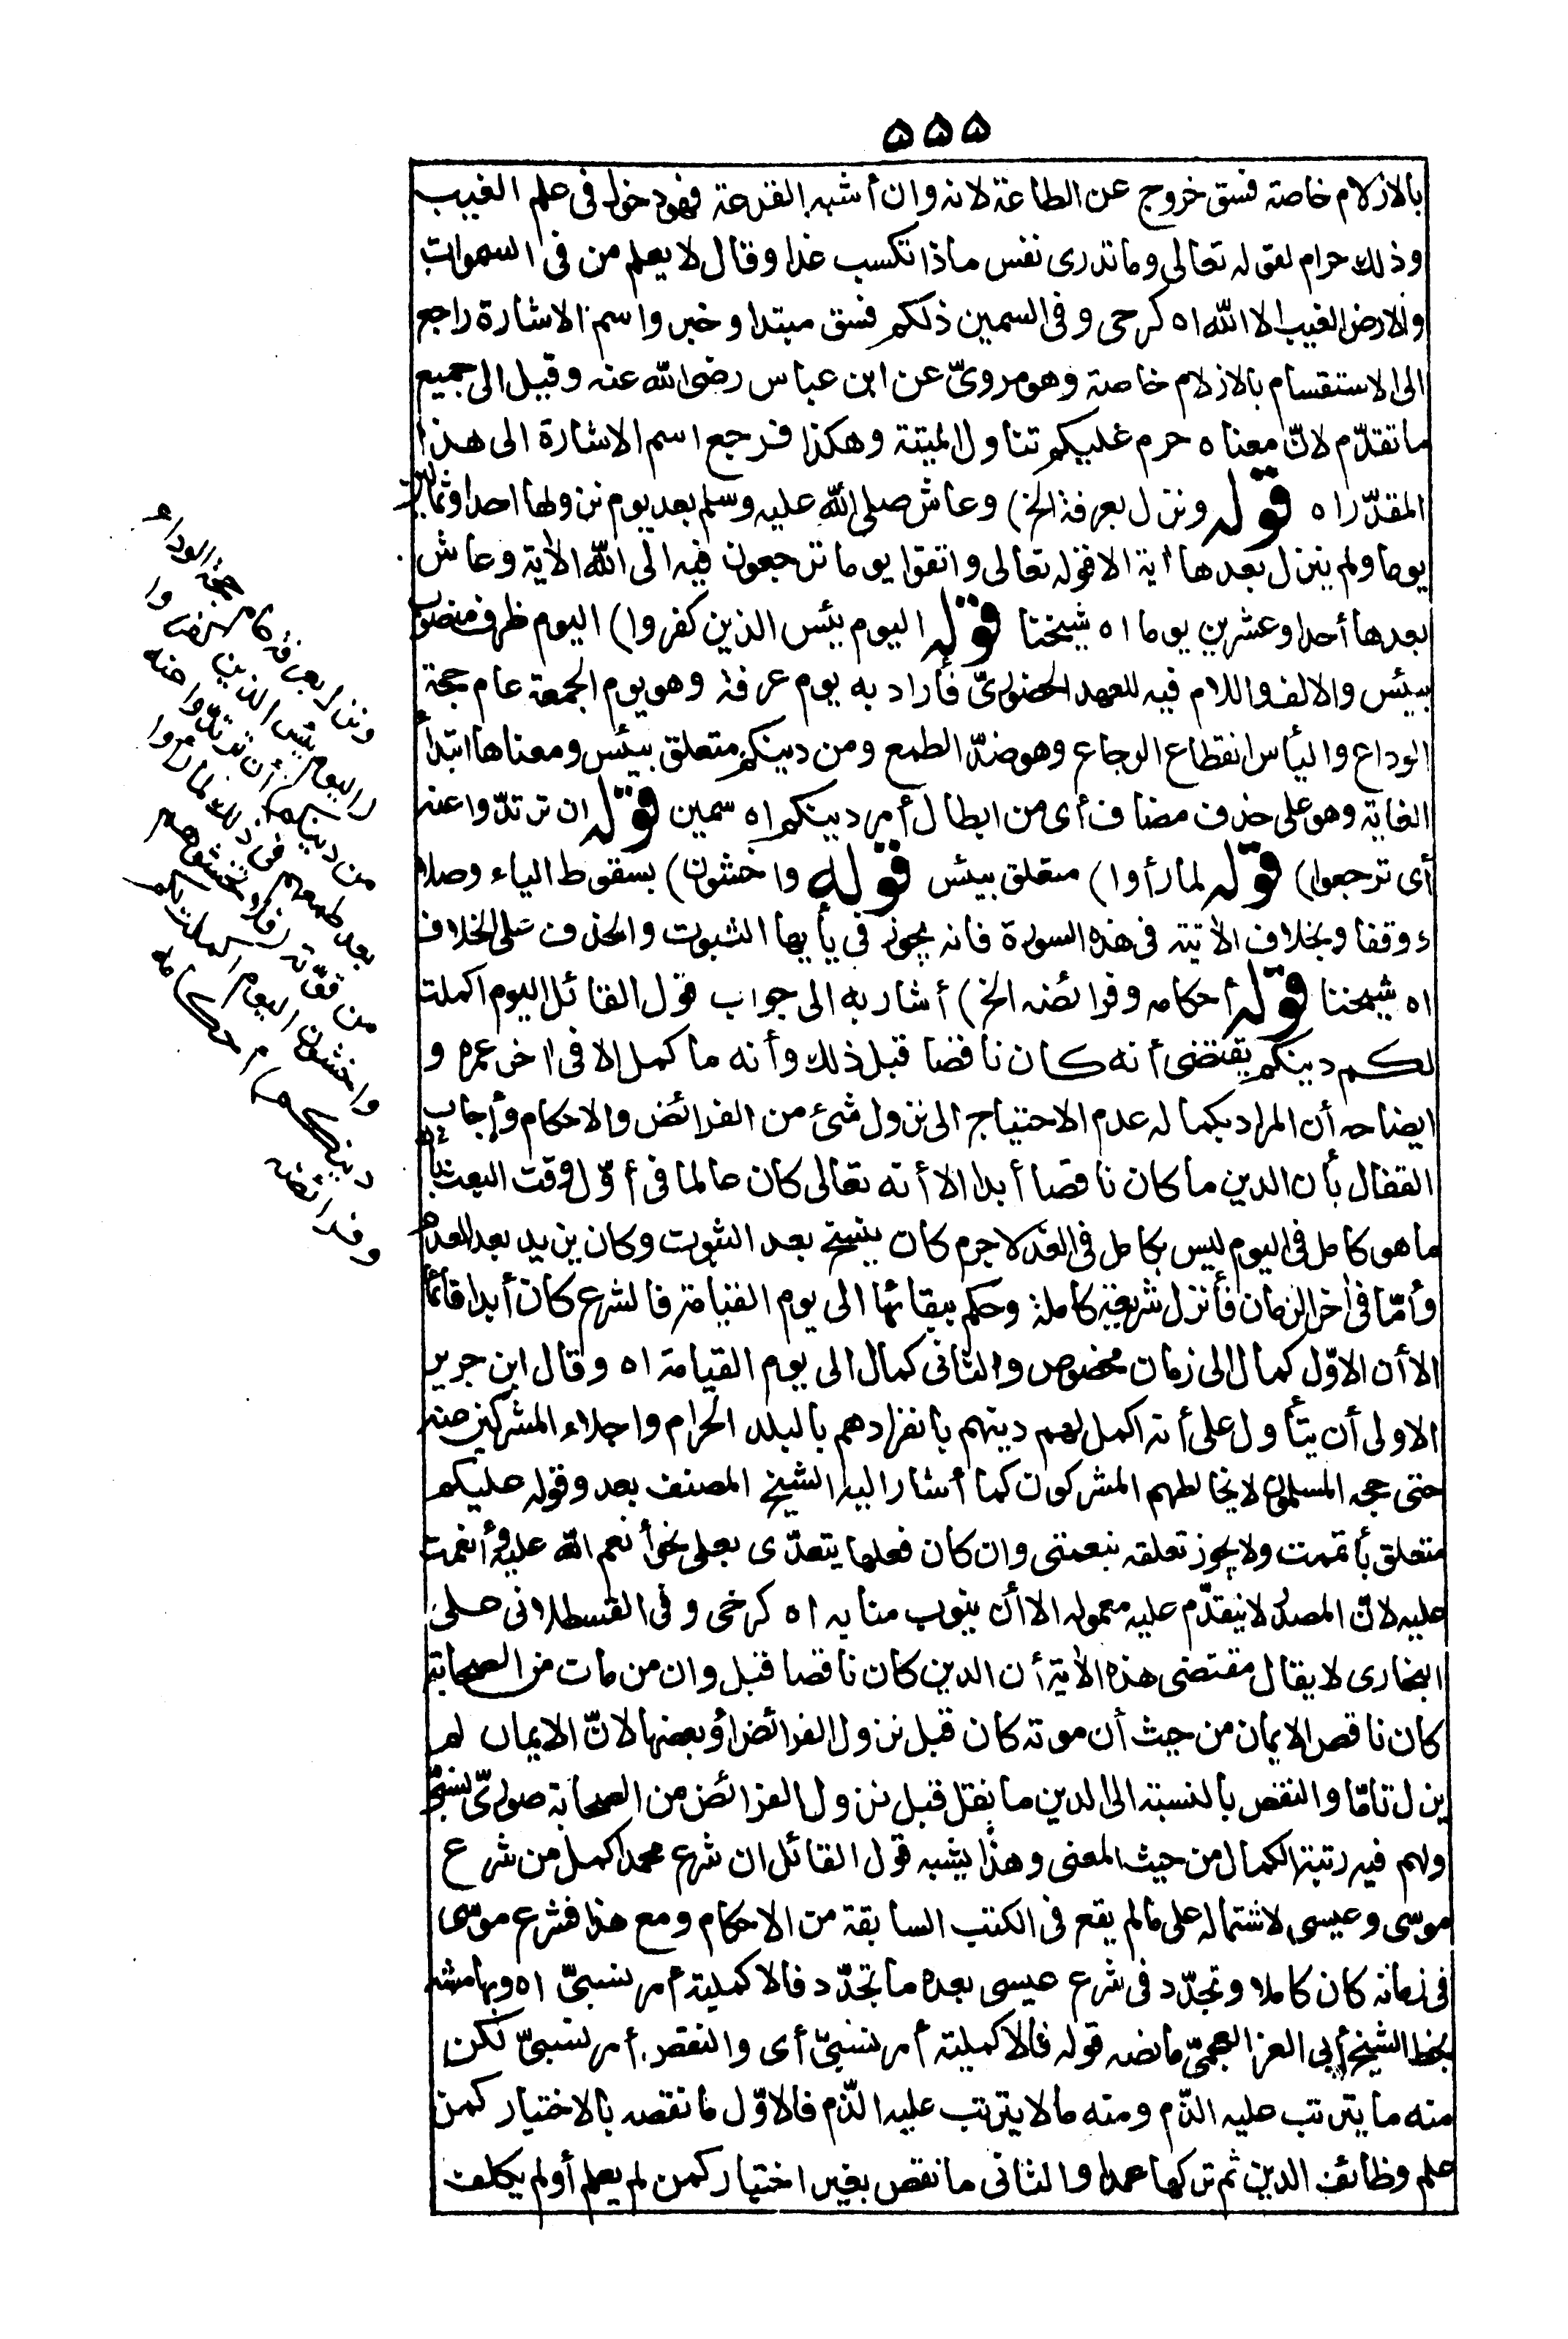 ۵۵۵
بالازلام خاصة فسق خروج عن الطاعة لانه وان أشبه القرعة فهو دخول فى علم الغيب
وذلك حرام لقوله تعالى وما تدرى نفس ماذا تكسب غدا وقال لا يعلم من فى السموات
والارض الغيب الا الله اه كرخى وفى السمين ذلكم فسق مبتدا وخبر واسم الاشارة راجع
الى الاستقسام بالازلام خاصة وهو مروىّ عن ابن عباس رضى الله عنه وقيل الى جميع
ما تقدّم لانّ معناه حرم عليكم تناول الميتة وهكذا فرجع اسم الاشارة الى هذا
المقدّر اه قوله ونزل بعرفة الخ) وعاش صلى الله عليه وسلم بعد يوم نزولها احدا وثمانين
يوما ولم ينزل بعدها اية الا قوله تعالى واتقوا يوما ترجعون فيه الى الله الاية وعاش
بعدها أحدا وعشرين يوما اه شيخنا قوله اليوم يئس الذين كفروا) اليوم ظرف منصوب
بيئس والالف واللام فيه للعهد الحضورىّ فأراد به يوم عرفة وهو يوم الجمعة عام حجة
الوداع واليأس انقطاع الرجاء وهو ضدّ الطمع ومن دينكم متعلق بيئس ومعناها ابتدأ
الغاية وهو على حذف مضاف أى من ابطال أمر دينكم اه سمين قوله ان ترتدّوا عنه
أى ترجعوا) قوله لما رأوا) متعلق بيئس قوله واخشون) بسقوط الياء وصلا
ء وقفا وبخلاف الاتية فى هذه السورة فانه يجوز فى يأيها الثبوت والحذف على الخلاف
اه شيخنا قوله أحكامه وفرائضه الخ) أشار به الى جواب قول القائل اليوم اكملت
لكم دينكم يقتضى أنه كان ناقصا قبل ذلك وأنه ما كمل الا فى اخر عمره و
ايضاحه أن المراد بكماله عدم الاحتياج الى نزول شئ من الفرائض والاحكام وأجاب
القفال بأن الدين ما كان ناقصا أبدا الا أنه تعالى كان عالما فى أوّل وقت البعث بأن
ما هو كامل فى اليوم ليس بكامل فى الغد لا جرم كان ينسخ بعد الثبوت وكان يزيد بعد العدم
وأمّا فى اخر الزمان فأنزل شريعة كاملة وحكم ببقائها الى يوم القيامة فالشرع كان أبدا قائما
الا أن الاوّل كمال الى زمان مخصوص والثانى كمال الى يوم القيامة اه وقال ابن جرير
الاولى أن يتأول على أنه اكمل لهم دينهم بانفرادهم بالبلد الحرام واجلاء المشركين منه
حتى حجه المسلمون لا يخالطهم المشركون كما أشار اليه الشيخ المصنف بعد وقوله عليكم
متعلق بأتممت ولا يجوز تعلقه بنعمتى وان كان فعلها يتعدّى بعلى نحو أنعم الله عليه وأنعمت
عليه لانّ المصدر لا يتقدّم عليه معموله الا أن ينوب منابه اه كرخى وفى القسطلانى على
البخارى لا يقال مقتضى هذه الاية أن الدين كان ناقصا قبل وان من مات من الصحابة
كان ناقص الايمان من حيث أن موته كان قبل نزول الفرائض أو بعضها لانّ الايمان لم
يزل تامّا والنقص بالنسبة الى الدين ما نقل قبل نزول الفرائض من الصحابة صورىّ نسبىّ
ولهم فيه رتبة الكمال من حيث المعنى وهذا يشبه قول القائل ان شرع محمد اكمل من شرع
موسى وعيسى لاشتماله على ما لم يقع فى الكتب السابقة من الاحكام ومع هذا فشرع موسى
فى زمانه كان كاملا وتجدّد فى شرع عيسى بعده ما تجدّد فالاكملية أمر نسبىّ اه وبهامشه
بخط الشيخ أبى العز العجمىّ ما نصه قوله فالاكملية أمر نسبىّ أى والنقص أمر نسبىّ لكن
منه ما يترتب عليه الذّم ومنه ما لا يترتب عليه الذّم فالاوّل ما نقصه بالاختيار كمن
علم وظائف الدين ثم تركها عمدا والثانى ما نقص بغير اختيار كمن لم يعلم أو لم يكلف
ونزل بعرفة عام حجة الوداع
(اليوم يئس الذين كفروا
من دينكم) أن ترتدّوا عنه
بعد طمعهم فى ذلك لما رأوا
من قوّته (فلا تخشوهم
واخشون اليوم اكملت لكم
دينكم) أحكامه
وفرائضه